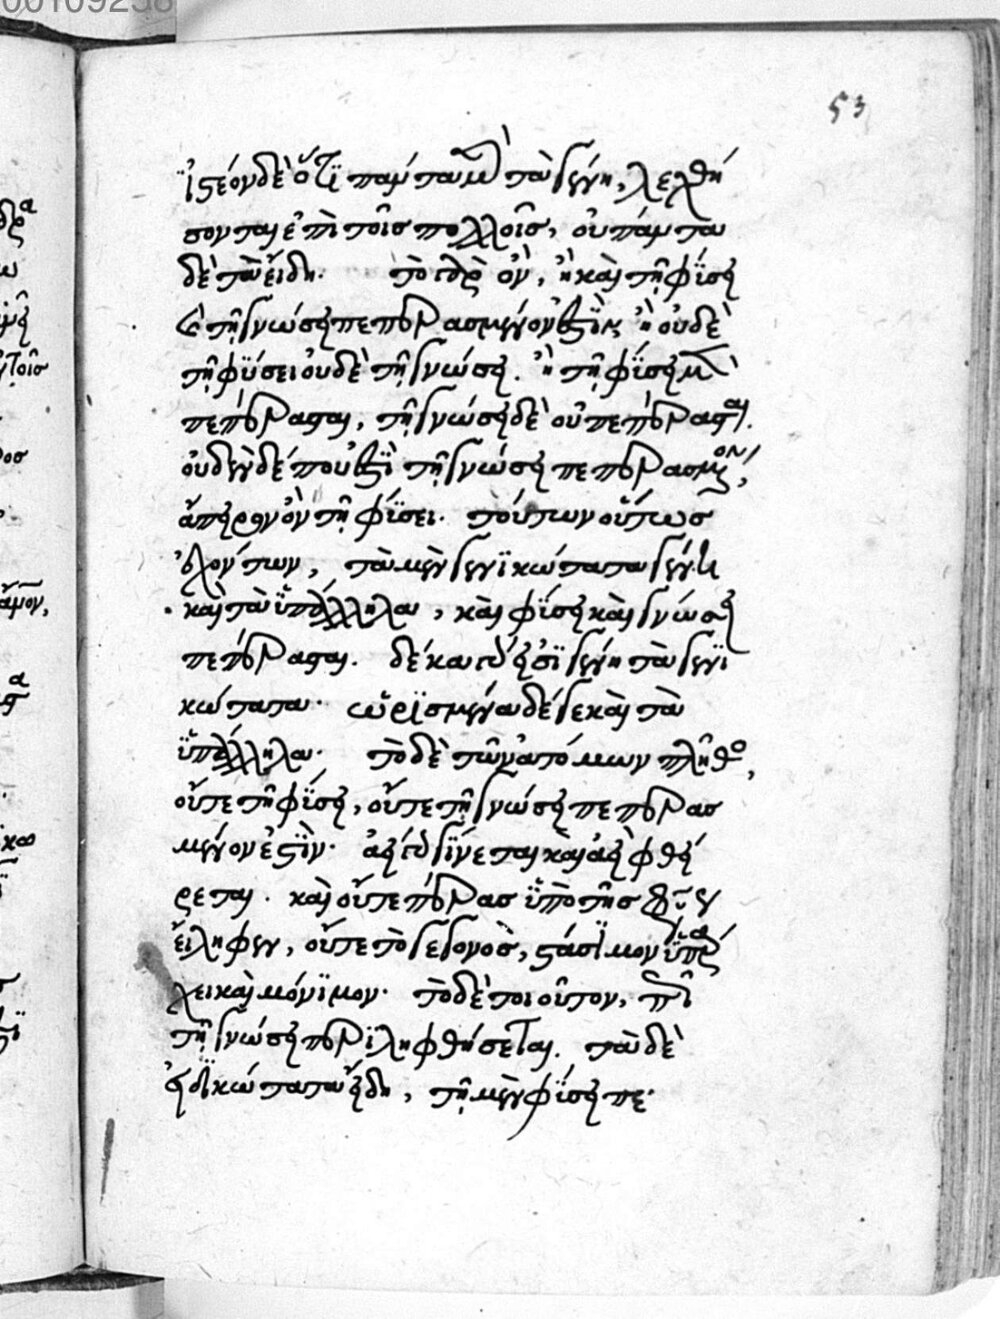 53
ἰστέον δὲ ὅτι πάντα μὲν τὰ γένη, λεχθή
σονται ἐπὶ τοῖς πολλοῖς, οὐ πάντα
δὲ τὰ εἴδη. τὸ γὰρ ὂν, ἢ καὶ τῇ φύσει
καὶ τῇ γνώσει πεπερασμένον ἐστὶν, ἢ οὐδὲ
τῇ φύσει οὐδὲ τῇ γνώσει. ἢ τῇ φύσει μὲν
πεπέρασται, τῇ γνώσει δὲ οὐ πεπέρασται.
οὐδὲν δέ που ἐστὶ τῇ γνώσει πεπερασμένον,
ἄπειρον ὂν τῇ φύσει. τούτων οὕτως
ἐχόντων, τὰ μὲν γενικώτατα γένη
καὶ τὰ ὑπάλληλα, καὶ φύσει καὶ γνώσει
πεπέρασται. δέκα γάρ εἰσι γένη τὰ γενι
κώτατα. ὡρισμένα δέ γε καὶ τὰ
ὑπάλληλα. τὸ δὲ τῶν ἀτόμων πλῆθος,
οὔτε τῇ φύσει, οὔτε τῇ γνώσει πεπερασ
μένον ἐστὶν. ἀεὶ γὰρ γίνεται καὶ ἀεὶ φθεί
ρεται. καὶ οὔτε πέρας ὑπὸ τῆς
εἴληφεν, οὔτε τὸ γεγονὸς, στάσιμον ὑπάρ
χει καὶ μόνιμον. τὸ δὲ τοιοῦτον,
τῇ γνώσει περιληφθήσεται. τὰ δὲ
εἰδικώτατα εἴδη, τῇ μὲν φύσει πε